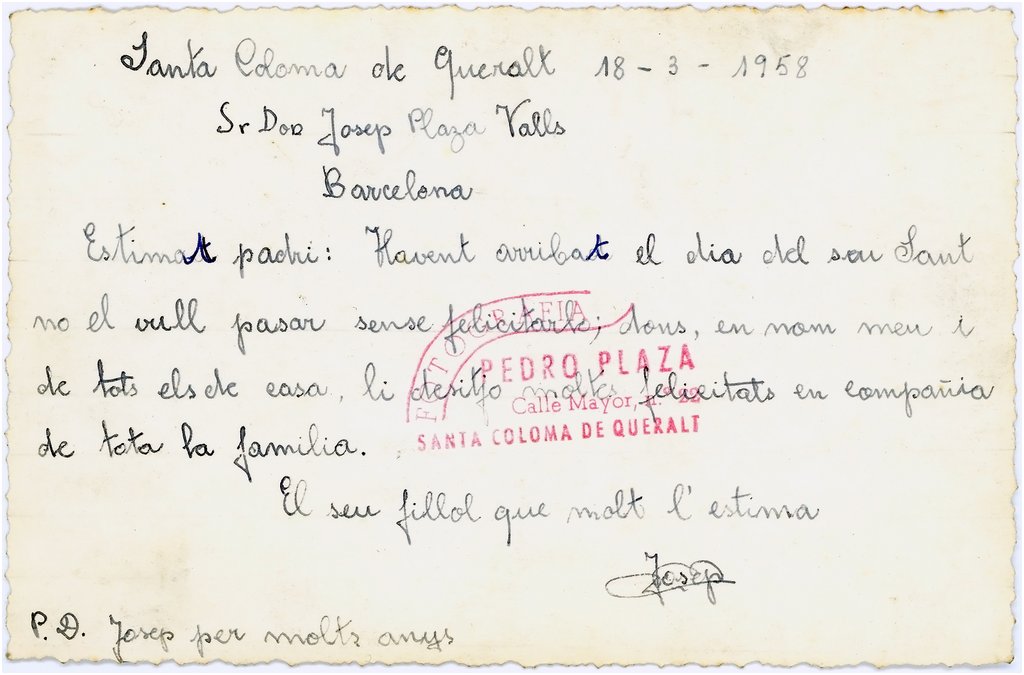 Santa Coloma de Queralt 18 - 3 - 1958
Sr Don Josep Plaza Valls
Barcelona
Estimat padri: Havent arribat el dia del seu Sant
no el vull pasar sense felicitarle; dons, en nom meu i
de tots els de casa, li desitjo moltes felicitats en compañia
de tota la familia.
El seu fillol que molt l'estima
Josep
P.D. Josep per molts anys
FOTOGRAFIA
PEDRO PLAZA
Calle Mayor, n.º 22
SANTA COLOMA DE QUERALT